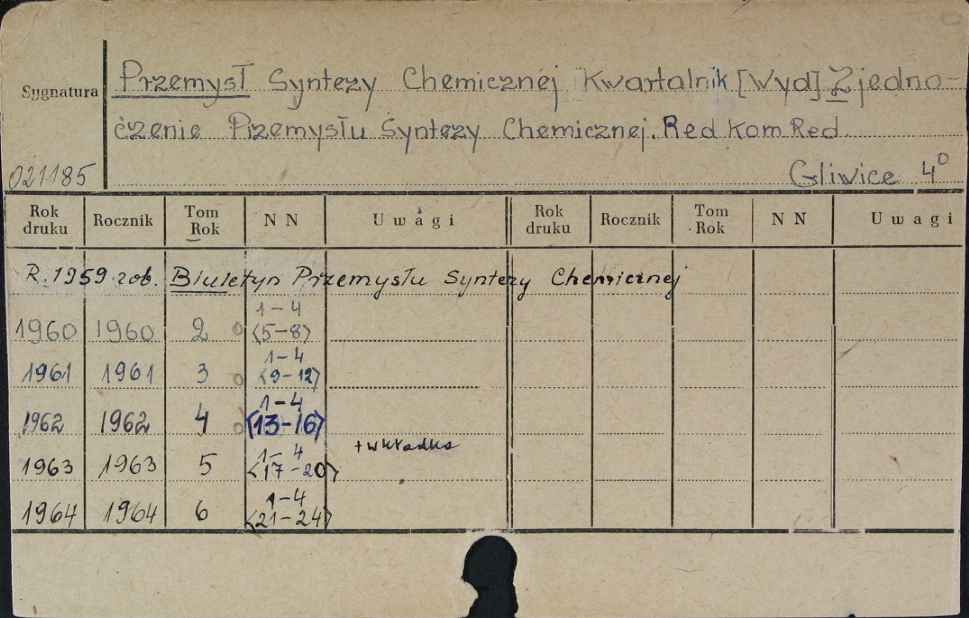 Przemysł Syntezy Chemicznej Kwartalnik [Wyd] Zjedno-
Sygnatura
czenie Przemysłu Syntezy Chemicznej. Red Kom Red
021185 Gliwice 4°
Rok druku Rocznik Tom Rok N N Uwagi Rok druku Rocznik Tom Rok N N Uwagi
R. 1959 zob. Biuletyn Przemysłu Syntezy Chemicznej
1-4
1960 1960 2 <5-8>
1-4
1961 1961 3 <9-12>
1-4
1962 1962 4 <13-16>
1-4 + wkładka
1963 1963 5 <17-20>
1-4
1964 1964 6 <21-24>